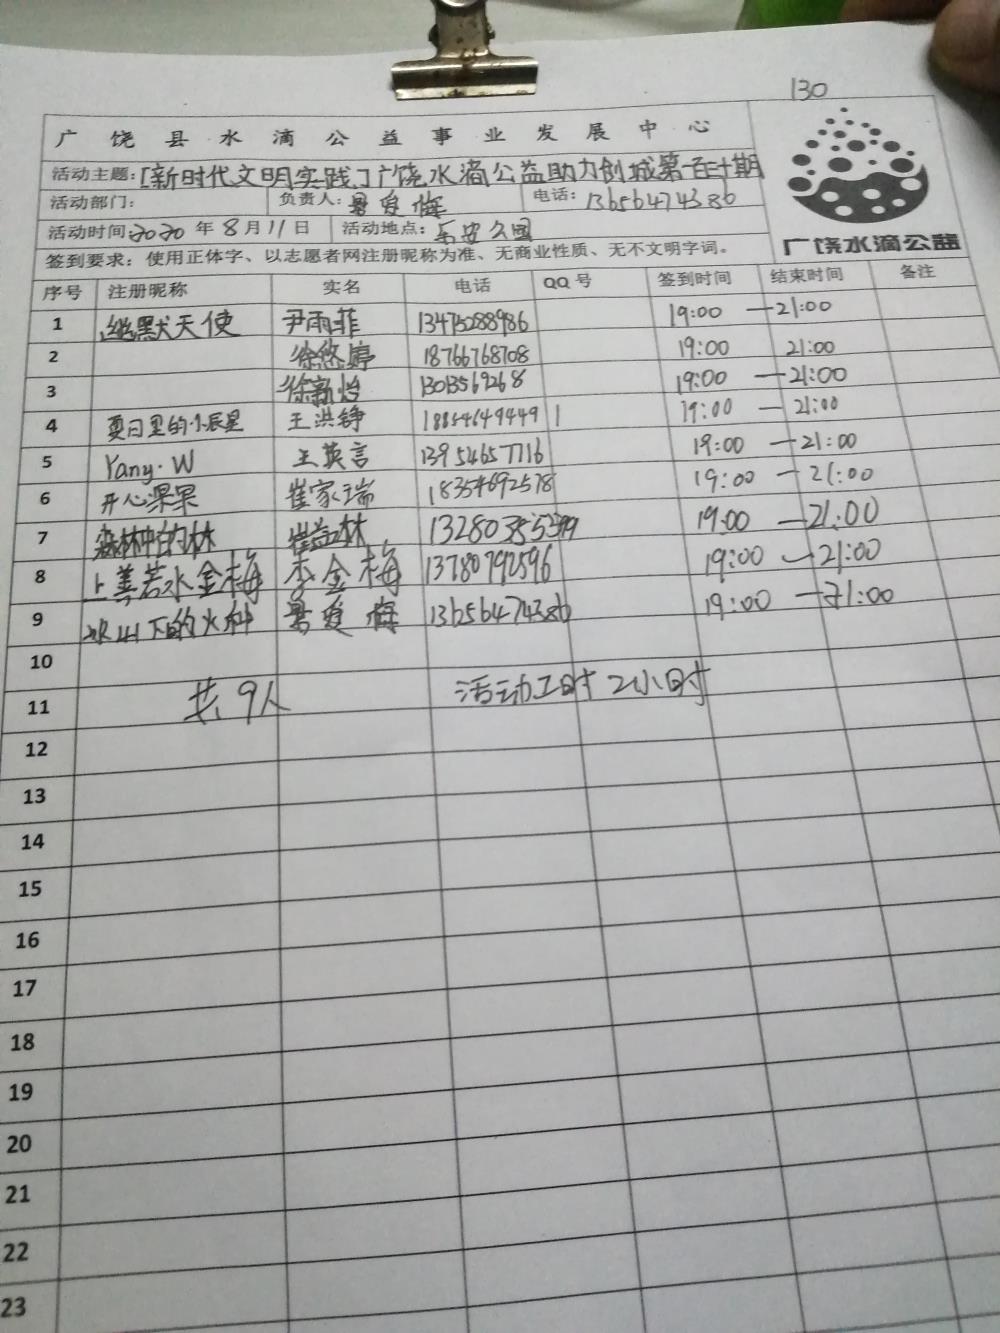 130
广饶县水滴公益事业发展中心
活动主题:[新时代文明实践]广饶水滴公益助力创城第一百三十期
活动部门: 负责人: 电话: 13656474386
活动时间:2020年8月11日 活动地点: 乐安公园
签到要求: 使用正体字、以志愿者网注册昵称为准、无商业性质、无不文明字词。
广饶水滴公益
序号 注册昵称 实名 电话 QQ号 签到时间 结束时间 备注
1 幽默天使 尹雨菲 13475288986 19:00 — 21:00
2 徐悠婷 18766768708 19:00 21:00
3 徐新怡 1303569268 19:00 — 21:00
4 夏日里的小辰星 王洪铮 18854649449 19:00 — 21:00
5 Yang·W 王英言 13954657716 19:00 — 21:00
6 开心果果 崔家瑞 18354692578 19:00 — 21:00
7 森林中的林 崔益林 19:00 — 21:00
8 上善若水金梅 李金梅 13780792596 19:00 — 21:00
9 冰山下的火种 13656474386 19:00 — 21:00
10
11 共9人 活动工时2小时
12
13
14
15
16
17
18
19
20
21
22
23